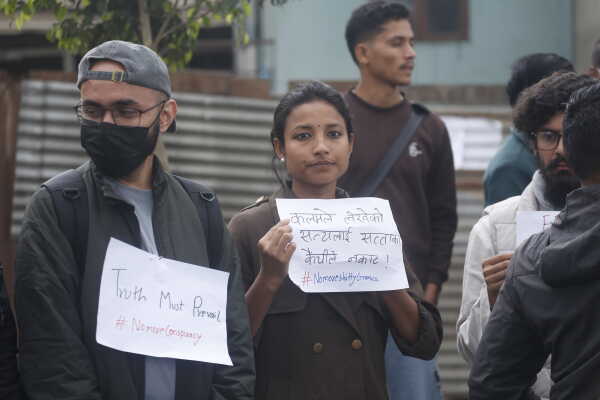 Truth Must Prevail
#Nomoreconspiracy
कलमले लेखेको
सत्यलाई सत्ताको
कैंचीले नकाट !